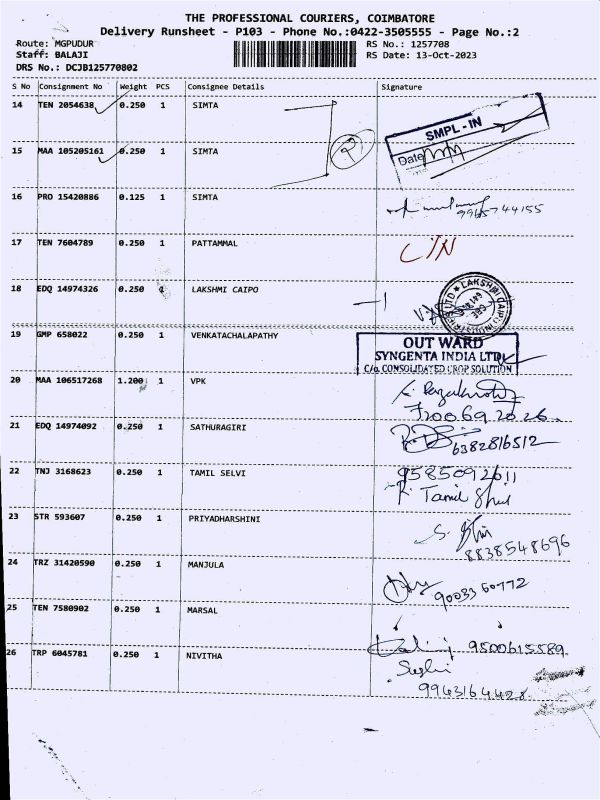 THE PROFESSIONAL COURIERS, COIMBATORE
Delivery Runsheet - P103 - Phone No.:0422-3505555 - Page No.:2
Route: MGPUDUR RS No.: 1257708
Staff: BALAJI RS Date: 13-Oct-2023
DRS No.: DCJB125770802
S No Consignment No Weight PCS Consignee Details Signature
14 TEN 2054638 0.250 1 SIMTA
SMPL-IN
Date
15 MAA 105205161 0.250 1 SIMTA
16 PRO 15420886 0.125 1 SIMTA
9965744155
17 TEN 7604789 0.250 1 PATTAMMAL
18 EDQ 14974326 0.250 1 LAKSHMI CAIPO
19 GMP 658022 0.250 1 VENKATACHALAPATHY
OUT WARD
SYNGENTA INDIA LTD
C/o CONSOLIDATED CROP SOLUTION
20 MAA 106517268 1.200 1 VPK
7200692026
21 EDQ 14974092 0.250 1 SATHURAGIRI
6382816512
22 TNJ 3168623 0.250 1 TAMIL SELVI
9585092611
23 STR 593607 0.250 1 PRIYADHARSHINI
8838548696
24 TRZ 31420590 0.250 1 MANJULA
9003360772
25 TEN 7580902 0.250 1 MARSAL
9500615589
26 TRP 6045781 0.250 1 NIVITHA
9943164428